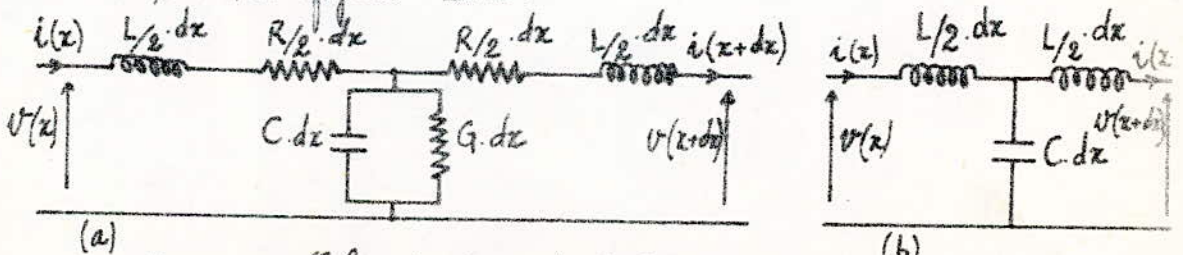 i(x) L/2.dx R/2.dx R/2.dx L/2.dx i(x+dx)
v(x) C.dx G.dx v(x+dx)
(a)
i(x) L/2.dx L/2.dx i(x
v(x) C.dx v(x+dx)
(b)